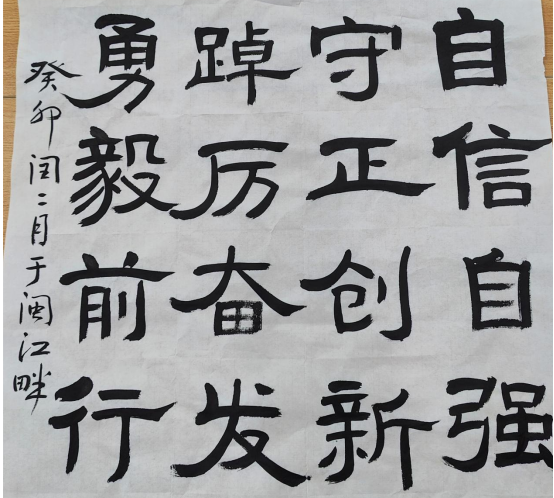 自信自强
守正创新
踔厉奋发
勇毅前行
癸卯闰二月于闽江畔